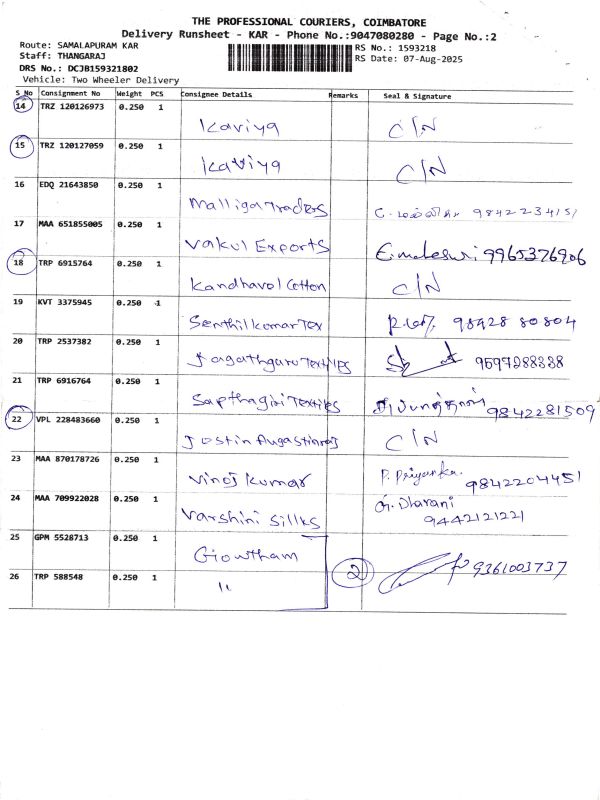 THE PROFESSIONAL COURIERS, COIMBATORE
Delivery Runsheet - KAR - Phone No.:9047080280 - Page No.:2
Route: SAMALAPURAM KAR
RS No.: 1593218
Staff: THANGARAJ
RS Date: 07-Aug-2025
DRS No.: DCJB159321802
Vehicle: Two Wheeler Delivery
S No Consignment No Weight PCS Consignee Details Remarks Seal & Signature
14 TRZ 120126973 0.250 1 Kaviya C/N
15 TRZ 120127059 0.250 1 Kaviya C/N
16 EDQ 21643850 0.250 1 Malliga Traders 9842234151
17 MAA 651855005 0.250 1 Vakul Exports E.maheswri 9965376906
18 TRP 6915764 0.250 1 Kandhavel Cotton C/N
19 KVT 3375945 0.250 1 Senthilkumar Tex 98428 80804
20 TRP 2537382 0.250 1 Jagathguru Textiles 9597288338
21 TRP 6916764 0.250 1 Sapthagiri Textiles 9842281509
22 VPL 228483660 0.250 1 Jostin Augastinraj C/N
23 MAA 870178726 0.250 1 Vinoj Kumar P. Priyanka. 9842204451
24 MAA 709922028 0.250 1 Varshini Sillks G. Dharani 9442121221
25 GPM 5528713 0.250 1 Gowtham
26 TRP 588548 0.250 1 " 2 9361003737